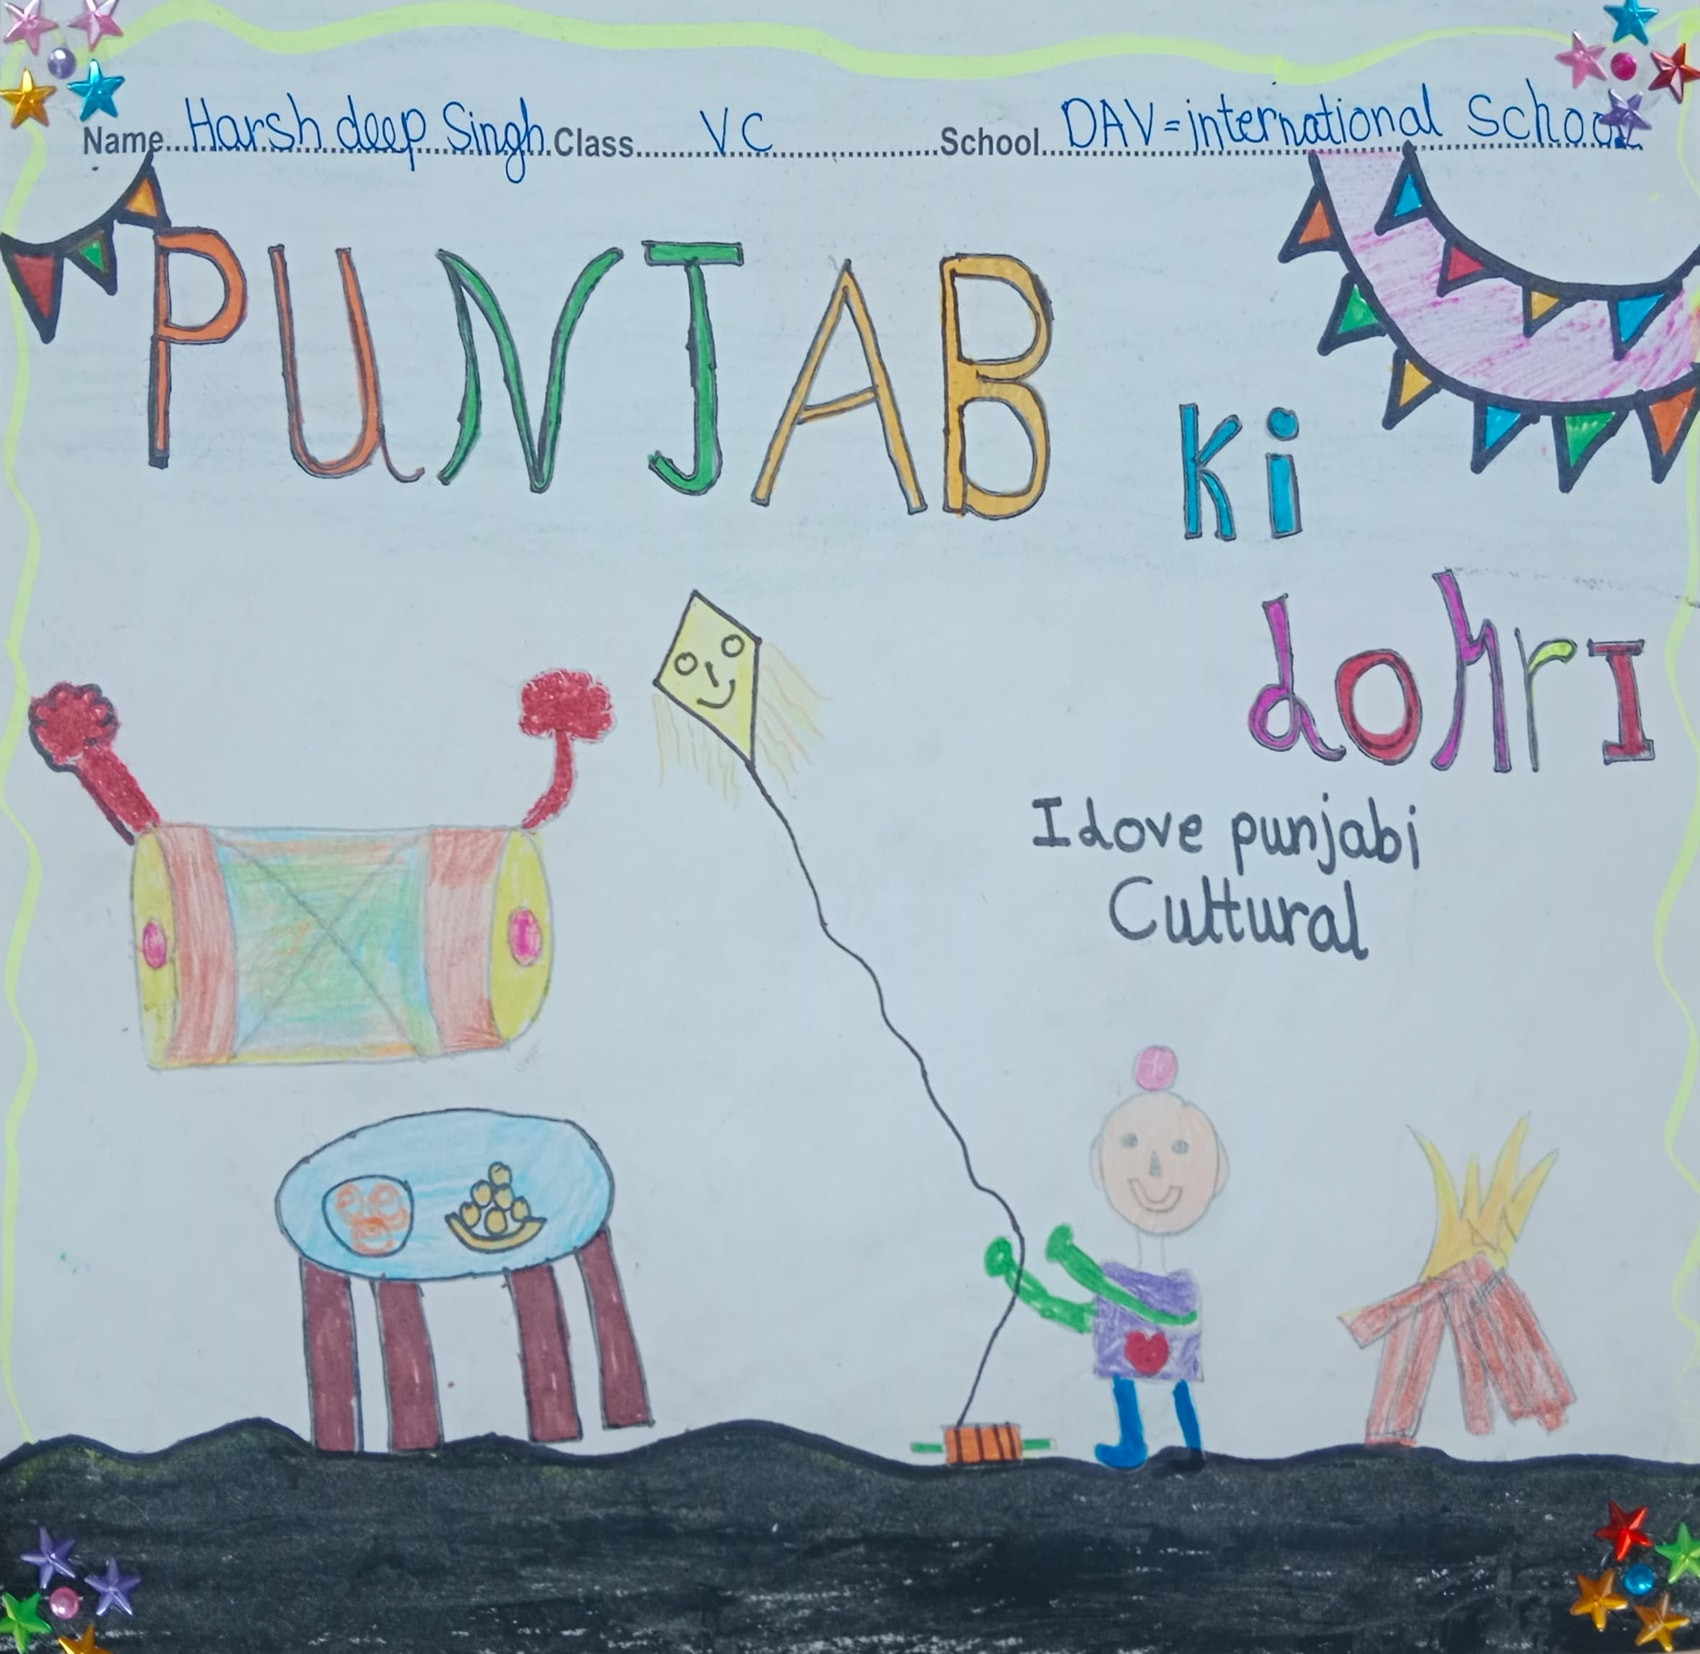 Name Harshdeep Singh Class V C School DAV=international School
PUNJAB
Ki
LOhrI
I Love punjabi
Cultural